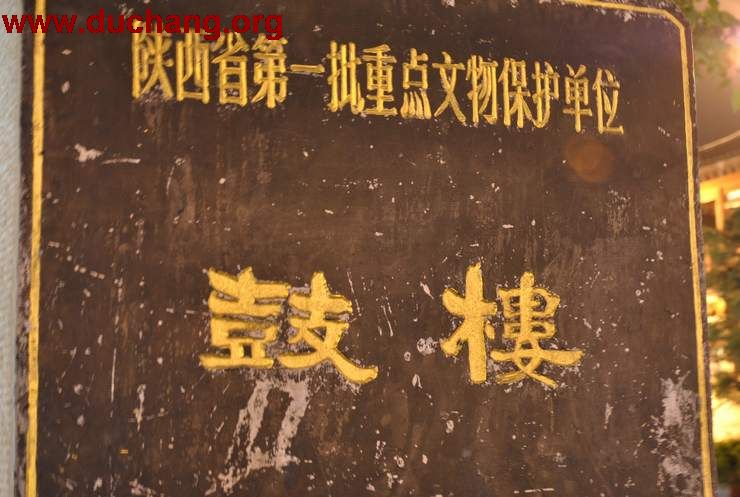 www.duchang.org
陕西省第一批重点文物保护单位
鼓樓